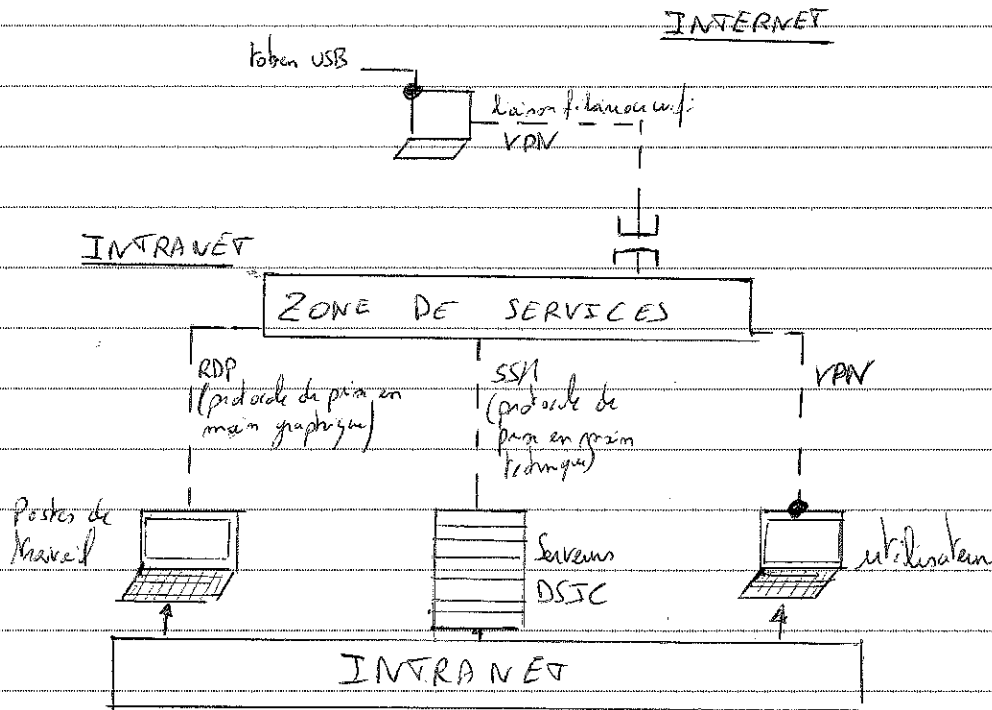 INTERNET
token USB
liaison filaire ou wifi
VPN
INTRANET
ZONE DE SERVICES
RDP
(protocole de prise en
main graphique)
SSH
(protocole de
prise en main
technique)
VPN
Postes de
travail
Serveurs
DSIC
utilisateur
INTRANET